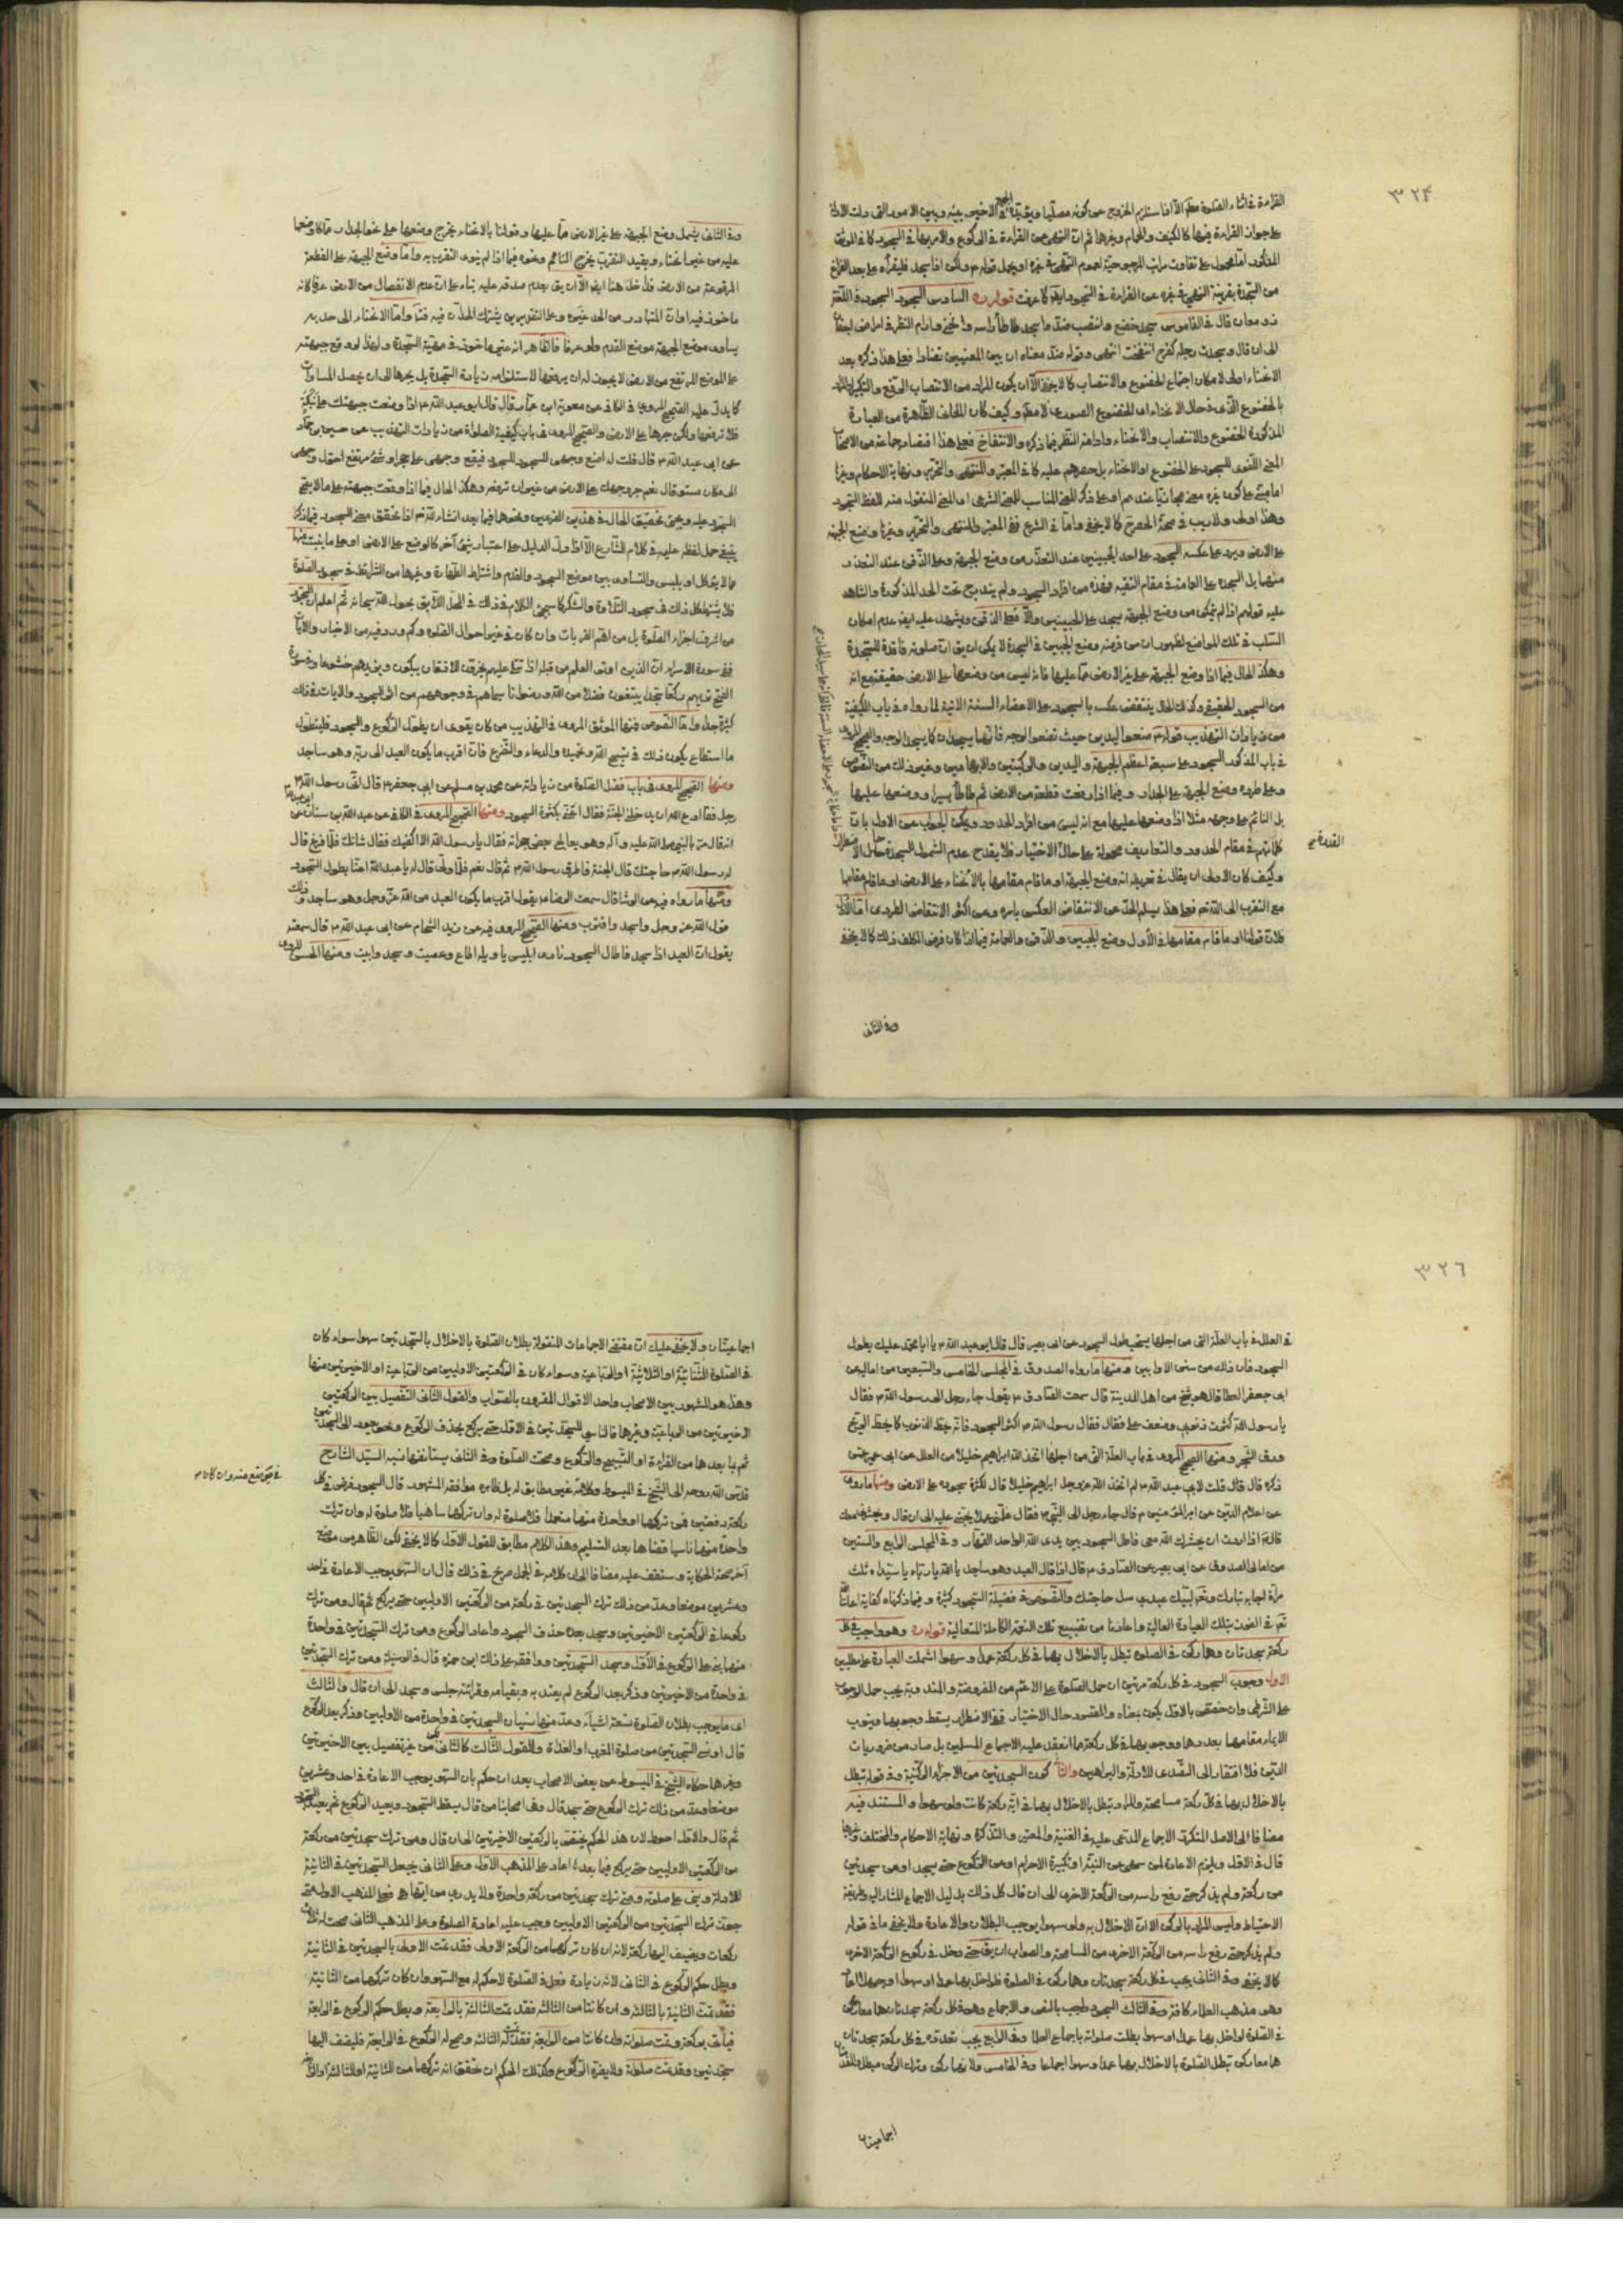 ٣٢٤
القراءة في اثناء الصلوة معه الا اذا استلزم الخروج عن كونه مصليا
على جواز القراءة فيها كالكنيف والحمام وغيرها ثم ان النهي عن القراءة في الركوع والامر بها في السجود كما في الموثق
المذكور اما محمول على تفاوت مراتب المرجوحية لعموم النهي في غيره او يحمل قوله ولكن اذا سجد فليقرأه على بعد الفراغ
من السجدة بقرينة النهي في غيره عن القراءة في السجود ايضا كما عرفت قوله ره السادس السجود السجود في اللغة
ذو معان قال في القاموس سجد خضع وانتصب ضد واسجد طأطأ راسه وانحنى وادام النظر في امراض اجفان
الى ان قال وسجدت رجله كفرح انتفخت انتهى وقوله ضد معناه ان بين المعنيين تضادا فعلى هذا ذكره بعد
الانحناء اولى لامكان اجتماع الخضوع والانتصاب كما لا يخفى الا ان يكون المراد من الانتصاب الترفع والتكبر والمراد
بالخضوع الذي في حال الانحناء اي الخضوع الصوري لا معه وكيف كان المعاني الظاهرة من العبارة
المذكورة الخضوع والانتصاب والانحناء وادامة النظر فيما ذكره والانتفاخ فعلى هذا اقتصار جماعة من الاصحاب
المعنى اللغوي للسجود على الخضوع او الانحناء بل حصرهم عليه كما في المعتبر والمنتهى والتحرير ونهاية الاحكام وغيرها
اما مبني على كون غيره معنى مجازيا عندهم او على ذكر المعنى المناسب للمعنى الشرعي اي المعنى المنقول منه للفظ السجود
وهذا اولى ولا ريب في صحة الحصر كما لا يخفى واما في الشرع ففي المعتبر والمنتهى والتحرير وغيرها وضع الجبهة
على الارض ويرد على عكسه السجود على احد الجبينين عند التعذر من وضع الجبهة وعلى الذقن عند التعذر
منهما بل السجدة على العمامة في مقام التقية فهذه من افراد السجود ولم يندرج تحت الحد المذكورة والشاهد
عليه قولهم اذا لم يتمكن من وضع الجبهة يسجد على الجبينين والا فعلى الذقن ويشهد عليه ايضا عدم امكان
السلب في تلك المواضع لظهور ان من فرضه وضع الجبين في السجدة لا يمكن ان يقال ان صلوته فاقدة للسجدة
وهكذا الحال فيما اذا وضع الجبهة على غير الارض مما عليها فانه ليس من وضعها على الارض حقيقة مع انه
من السجود الحقيقي وكذلك الحال ينتقض عكسه بالسجود على الاعضاء الستة الاتية لما رواه في باب الكيفية
من زيادات التهذيب قوله ضعوا اليدين حيث تضعوا الوجه فانهما يسجدان كما يسجد الوجه
في باب المذكور السجود على سبعة اعظم الجبهة واليدين والركبتين والابهامين وغير ذلك من النصوص
وعلى طرده وضع الجبهة على الجدار وفيما اذا رفعت قطعة من الارض ثم طأطأ يسيرا ووضعها عليها
بل النائم على وجهه مثلا اذا وضعها عليها مع انه ليس من افراد المحدود ويمكن الجواب عن الاول بان
كلامهم في مقام الحدود والتعاريف محمولة على حال الاختيار فلا يقدح عدم الشمول للسجدة حال الاضطرار
وكيف كان الاولى ان يقال في تعريفه انه وضع الجبهة او ما قام مقامها بالانحناء على الارض او ما قام مقامها
مع التقرب الى الله تعالى فعلى هذا يسلم الحد عن الانتقاض العكسي باسره وعن اكثر الانتقاض الطردي اما الاول
فلان قولنا او ما قام مقامها في الاول وضع الجبين والذقن والعمامة فيما اذا كان فرض المكلف ذلك كما لا يخفى
وفي الثاني
وفي الثاني يشمل وضع الجبهة على غير الارض مما عليها وقولنا بالانحناء يخرج وضعها على نحو الجدار مما كان وضعها
عليه من غير انحناء وبقيد التقرب يخرج النائم ونحوه فيما اذا لم ينوى التقرب به واما وضع الجبهة على القطعة
المرفوعة من الارض فداخل هنا ايضا الا ان يق بعدم صدقه عليه بناء على ان عدم الانفصال من الارض عرفا كانه
ماخوذ فيه او ان المتبادر من الحد غيره وعلى التقديرين يشترك الحدان فيه ثم اما الانحناء الى حد به
يساوي موضع الجبهة موضع القدم ولو عرفا فالظاهر انه معنى ماخوذ في مهية السجدة ولهذا لو وقع جبهته
على الموضع المرتفع من الارض لا يجوز له ان يرفعها لاستلزامه زيادة السجدة بل يجرها الى ان يحصل المساواة
كما يدل عليه الصحيح المروي في الكافي عن معوية ابن عمار قال قال ابو عبد الله ع اذا وضعت جبهتك على نبكة
فلا ترفعها ولكن جرها على الارض والصحيح المروي في باب كيفية الصلوة من زيادات التهذيب عن حسين بن حماد
عن ابي عبد الله ع قال قلت له اضع وجهي للسجود فيقع وجهي على حجر او شئ مرتفع احول وجهي
الى مكان مستو قال نعم جر وجهك على الارض من غير ان ترفعه وهكذا الحال فيما اذا وقعت جبهته على ما لا يصح
السجود عليه ويجئ تحقيق الحال في هذين الفرعين ونحوها فيما بعد انشاء الله تعالى اذا تحقق معنى السجود فيما ذكر
ينبغي حمل لفظه عليه في كلام الشارع الا اذا دل الدليل على اعتبار شئ آخر كالوضع على الارض او على ما ينبت منها
مما لا يؤكل او يلبس والتساوي بين موضع السجود والقدم واشتراط الطهارة وغيرها من الشرائط في سجود الصلوة
فلا يشترط كل ذلك في سجود التلاوة والشكر كما سيجئ الكلام في ذلك في المحل اللائق بحول الله سبحانه ثم اعلم ان السجود
من اشرف اجزاء الصلوة بل من اهم القربات وان كان في غير احوال الصلوة وكم ورد فيه من الاخبار والايات
ففي سورة الاسراء ان الذين اوتوا العلم من قبله اذا يتلى عليهم يخرون للاذقان يبكون ويزيدهم خشوعا وفي سورة
الفتح تريهم ركعا سجدا يبتغون فضلا من الله ورضوانا سيماهم في وجوههم من اثر السجود والايات في ذلك
كثيرة جدا واما النصوص فمنها الموثق المروي في التهذيب من كان يقوى ان يطول الركوع والسجود فليتطول
ما استطاع يكون ذلك في تسبيح الله وتحميده والدعاء والتضرع فان اقرب ما يكون العبد الى ربه وهو ساجد
ومنها الصحيح المروي في باب فضل الصلوة من زياداته عن محمد بن مسلم عن ابي جعفر ع قال اتى رسول الله ص
رجل فقال ادع الله ان يدخلني الجنة فقال اعني بكثرة السجود ومنها الصحيح المروي في الكافي عن عبد الله بن سنان عن
انه قال مر بالنبي صلى الله عليه وآله وهو يعالج بعض حجراته فقال يا رسول الله الا اكفيك فقال شانك فلما فرغ قال
له رسول الله ص حاجتك قال الجنة فاطرق رسول الله ص ثم قال نعم فلما ولى قال له يا عبد الله اعنا بطول السجود
ومنها ما رواه فيه عن الوشا قال سمعت الرضا ع يقول اقرب ما يكون العبد من الله عز وجل وهو ساجد وذلك
قول الله عز وجل واسجد واقترب ومنها الصحيح المروي فيه عن زيد الشحام عن ابي عبد الله ع قال سمعته
يقول ان العبد اذا سجد فاطال السجود نادى ابليس يا ويله اطاع وعصيت وسجد وابيت ومنها الحسن المروي
٣٢٦
في العلل في باب العلة التي من اجلها يستحب طول السجود عن ابي بصير قال قال ابو عبد الله ع يا ابا محمد عليك بطول
السجود فان ذلك من سنن الاوابين ومنها ما رواه الصدوق في المجلس الخامس والسبعين من اماليه عن
ابي جعفر العطار قال هو شيخ من اهل المدينة قال سمعت الصادق ع يقول جاء رجل الى رسول الله ص فقال
يا رسول الله كثرت ذنوبي وضعف عملي فقال رسول الله ص اكثر السجود فانه يحط الذنوب كما يحط الريح
ورق الشجر ومنها الصحيح المروي في باب العلة التي من اجلها اتخذ الله ابراهيم خليلا من العلل عن ابن ابي عمير عمن
ذكره قال قال قلت لابي عبد الله ع لم اتخذ الله عز وجل ابراهيم خليلا قال لكثرة سجوده على الارض ومنها ما روى
عن اعلام الدين عن امير المؤمنين ع قال جاء رجل الى النبي ص فقال علمني عملا يحبني عليه الى ان قال ويحشرني معك
قال اذا اردت ان يحشرك الله معي فاطل السجود بين يدي الله الواحد القهار وفي المجلس الرابع والستين
من امالي الصدوق عن ابي بصير عن الصادق ع قال اذا قال العبد وهو ساجد يا الله يا رباه يا سيداه ثلث
مرات اجابه تبارك وتعالى لبيك عبدي سل حاجتك والنصوص في فضيلة السجود كثيرة وفيما ذكرناه كفاية اعاننا الله
تعالى في الفوز بتلك العبادة العالية واعاذنا من تضييع تلك النعمة الكاملة المتعالية قوله ره وهو واجب في كل
ركعة سجدتان وهما ركن في الصلوة تبطل بالاخلال بهما في كل ركعة عمدا وسهوا اشتملت العبارة على مطلبين
الاول وجوب السجود في كل ركعة مرتين ان حمل الصلوة على الاعم من المفروضة والمندوبة يجب حمل الوجوب
على الشرطي وان خصصت بالاول يكون بمعناه والمقصود حال الاختيار ففي الاضطرار يسقط وجوبها وينوب
الايماء مقامها بعدد هما ووجوبهما في كل ركعة مما انعقد عليه الاجماع المسلمين بل صار من ضروريات
الدين فلا افتقار الى التصدي للادلة والبراهين والثاني كون السجدتين من الاجزاء الركنية وفي قوله تبطل
بالاخلال بهما في كل ركعة مسامحة والمراد تبطل بالاخلال بهما في اية ركعة كانت ولو سهوا والمستند فيه
مضافا الى الاصل المتكرر الاجماع المدعى عليه في الغنية والمعتبر والتذكرة ونهاية الاحكام والمختلف وغيرها
قال في الاول ويلزم الاعادة لمن سهى عن النية او تكبيرة الاحرام او عن الركوع حتى يسجد او عن سجدتين
من ركعة ولم يذكر حتى رفع راسه من الركعة الاخرى الى ان قال كل ذلك بدليل الاجماع المشار اليه وطريقة
الاحتياط وليس المراد بالركن الا ان الاخلال به ولو سهوا يوجب البطلان والاعادة ولا يخفى ما في قوله
ولم يذكر حتى رفع راسه من الركعة الاخرى من المسامحة والصواب ان يق حتى دخل في ركوع الركعة الاخرى
كما لا يخفى وفي الثاني يجب في كل ركعة سجدتان وهما ركن في الصلوة فلو اخل بهما عمدا او سهوا او جهلا اعاد
وهو مذهب العلماء كافة وفي الثالث السجود واجب بالنص والاجماع وهو في كل ركعة سجدتان هما معا ركن
في الصلوة لو اخل بهما عمدا او سهوا بطلت صلوته باجماع العلما وفي الرابع يجب تعدده في كل ركعة سجدتان
هما معا ركن تبطل الصلوة بالاخلال بهما عمدا وسهوا اجماعا وفي الخامس ولانهما ركن وترك الركن مبطل
اجماعيتان
اجماعيتان ولا يخفى عليك ان مقتضى الاجماعات المنقولة بطلان الصلوة بالاخلال بالسجدتين سهوا سواء كان
في الصلوة الثنائية او الثلاثية او الرباعية وسواء كان في الركعتين الاوليين من الرباعية او الاخيرتين منها
وهذا هو المشهور بين الاصحاب واحد الاقوال المقرون بالصواب والقول الثاني التفصيل بين الركعتين
الاخيرتين من الرباعية وغيرها فالناسي للسجدتين في الاول حتى يركع يحذف الركوع ويعود الى السجدتين
ثم ياتي بما بعدها من القراءة او التسبيح والركوع وصحت الصلوة وفي الثاني يستانفها نسبه السيد الشارح
قدس الله روحه الى الشيخ في المبسوط وكلامه غير مطابق له بل ظاهره موافقة المشهور قال السجود فرض في كل
ركعة دفعتين فمن تركهما او واحدة منهما متعمدا فلا صلوة له وان تركهما ساهيا فلا صلوة له وان ترك
واحدة منهما ناسيا قضاها بعد التسليم وهذا الكلام مطابق للقول الاول كما لا يخفى لكن الظاهر من موضع
آخر صحة الحكاية وستقف عليه مضافا الى ان كلامه في الجمل صريح في ذلك قال ان السهو يوجب الاعادة في احد
وعشرين موضعا وعد من ذلك ترك السجدتين في ركعة من الركعتين الاوليين حتى يركع ثم قال ومن ترك
ركوعا في الركعتين الاخيرتين وسجد بعده حذف السجود واعاد الركوع ومن ترك السجدتين في واحدة
منهما بنى على الركوع في الاول وسجد السجدتين ووافقه على ذلك ابن حمزة قال في الوسيلة ومن ترك السجدتين
في واحدة من الاخيرتين وذكر بعد الركوع لم يعتد به وبقيامه وقرائته جلس وسجد الى ان قال والثالث
اي ما يوجب بطلان الصلوة تسعة اشياء وعد منها نسيان السجدتين في واحدة من الاوليين وذكر بعد الركوع
قال او نسي السجدتين من صلوة المغرب او الغداة والقول الثالث كالثاني لكن من غير تفصيل بين الاخيرتين
وغيرهما حكاه الشيخ في المبسوط عن بعض الاصحاب بعد ان حكم بان السهو يوجب الاعادة في احد وعشرين
موضعا وعد من ذلك ترك الركوع حتى سجد قال وفي اصحابنا من قال يسقط السجود ويعيد الركوع ثم يعيد السجود
ثم قال والاول احوط لان هذا الحكم يختص بالركعتين الاخيرتين الى ان قال ومن ترك سجدتين من ركعة
من الركعتين الاوليين حتى يركع فيما بعدها اعاد على المذهب الاول وعلى الثاني يجعل السجدتين في الثانية
للاولة وبنى على صلوته ومتى ترك سجدتين من ركعة واحدة ولا يدري من ايتها هي فعلى المذهب الاول متى
جوز ترك السجدتين من الركعتين الاوليين وجب عليه اعادة الصلوة وعلى المذهب الثاني صحت له ثلاث
ركعات ويضيف اليها ركعة لانه ان كان تركهما من الركعة الاولى فقد تمت الاولى بالسجدتين في الثانية
وبطل حكم الركوع في الثاني لانه زيادة فعل في الصلوة لا حكم له مع السهو وان كان تركهما من الثانية
فقد تمت الثانية بالثالثة وان كانتا من الثالثة فقد تمت الثالثة بالرابعة وبطل حكم الركوع في الرابعة
فياتي بركعة وتمت صلوته وان كانتا من الرابعة فقد صحت له الثالثة وصح له الركوع في الرابعة فليضف اليها
سجدتين وقد تمت صلوته ولا يضره الركوع وكذلك الحكم ان تحقق انه تركهما من الثانية او الثالثة او الرابعة